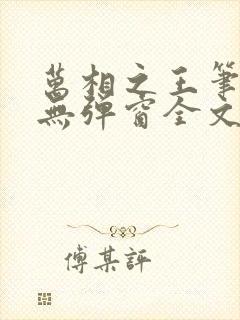 萬相之王筆
無彈窗全文
傅某評